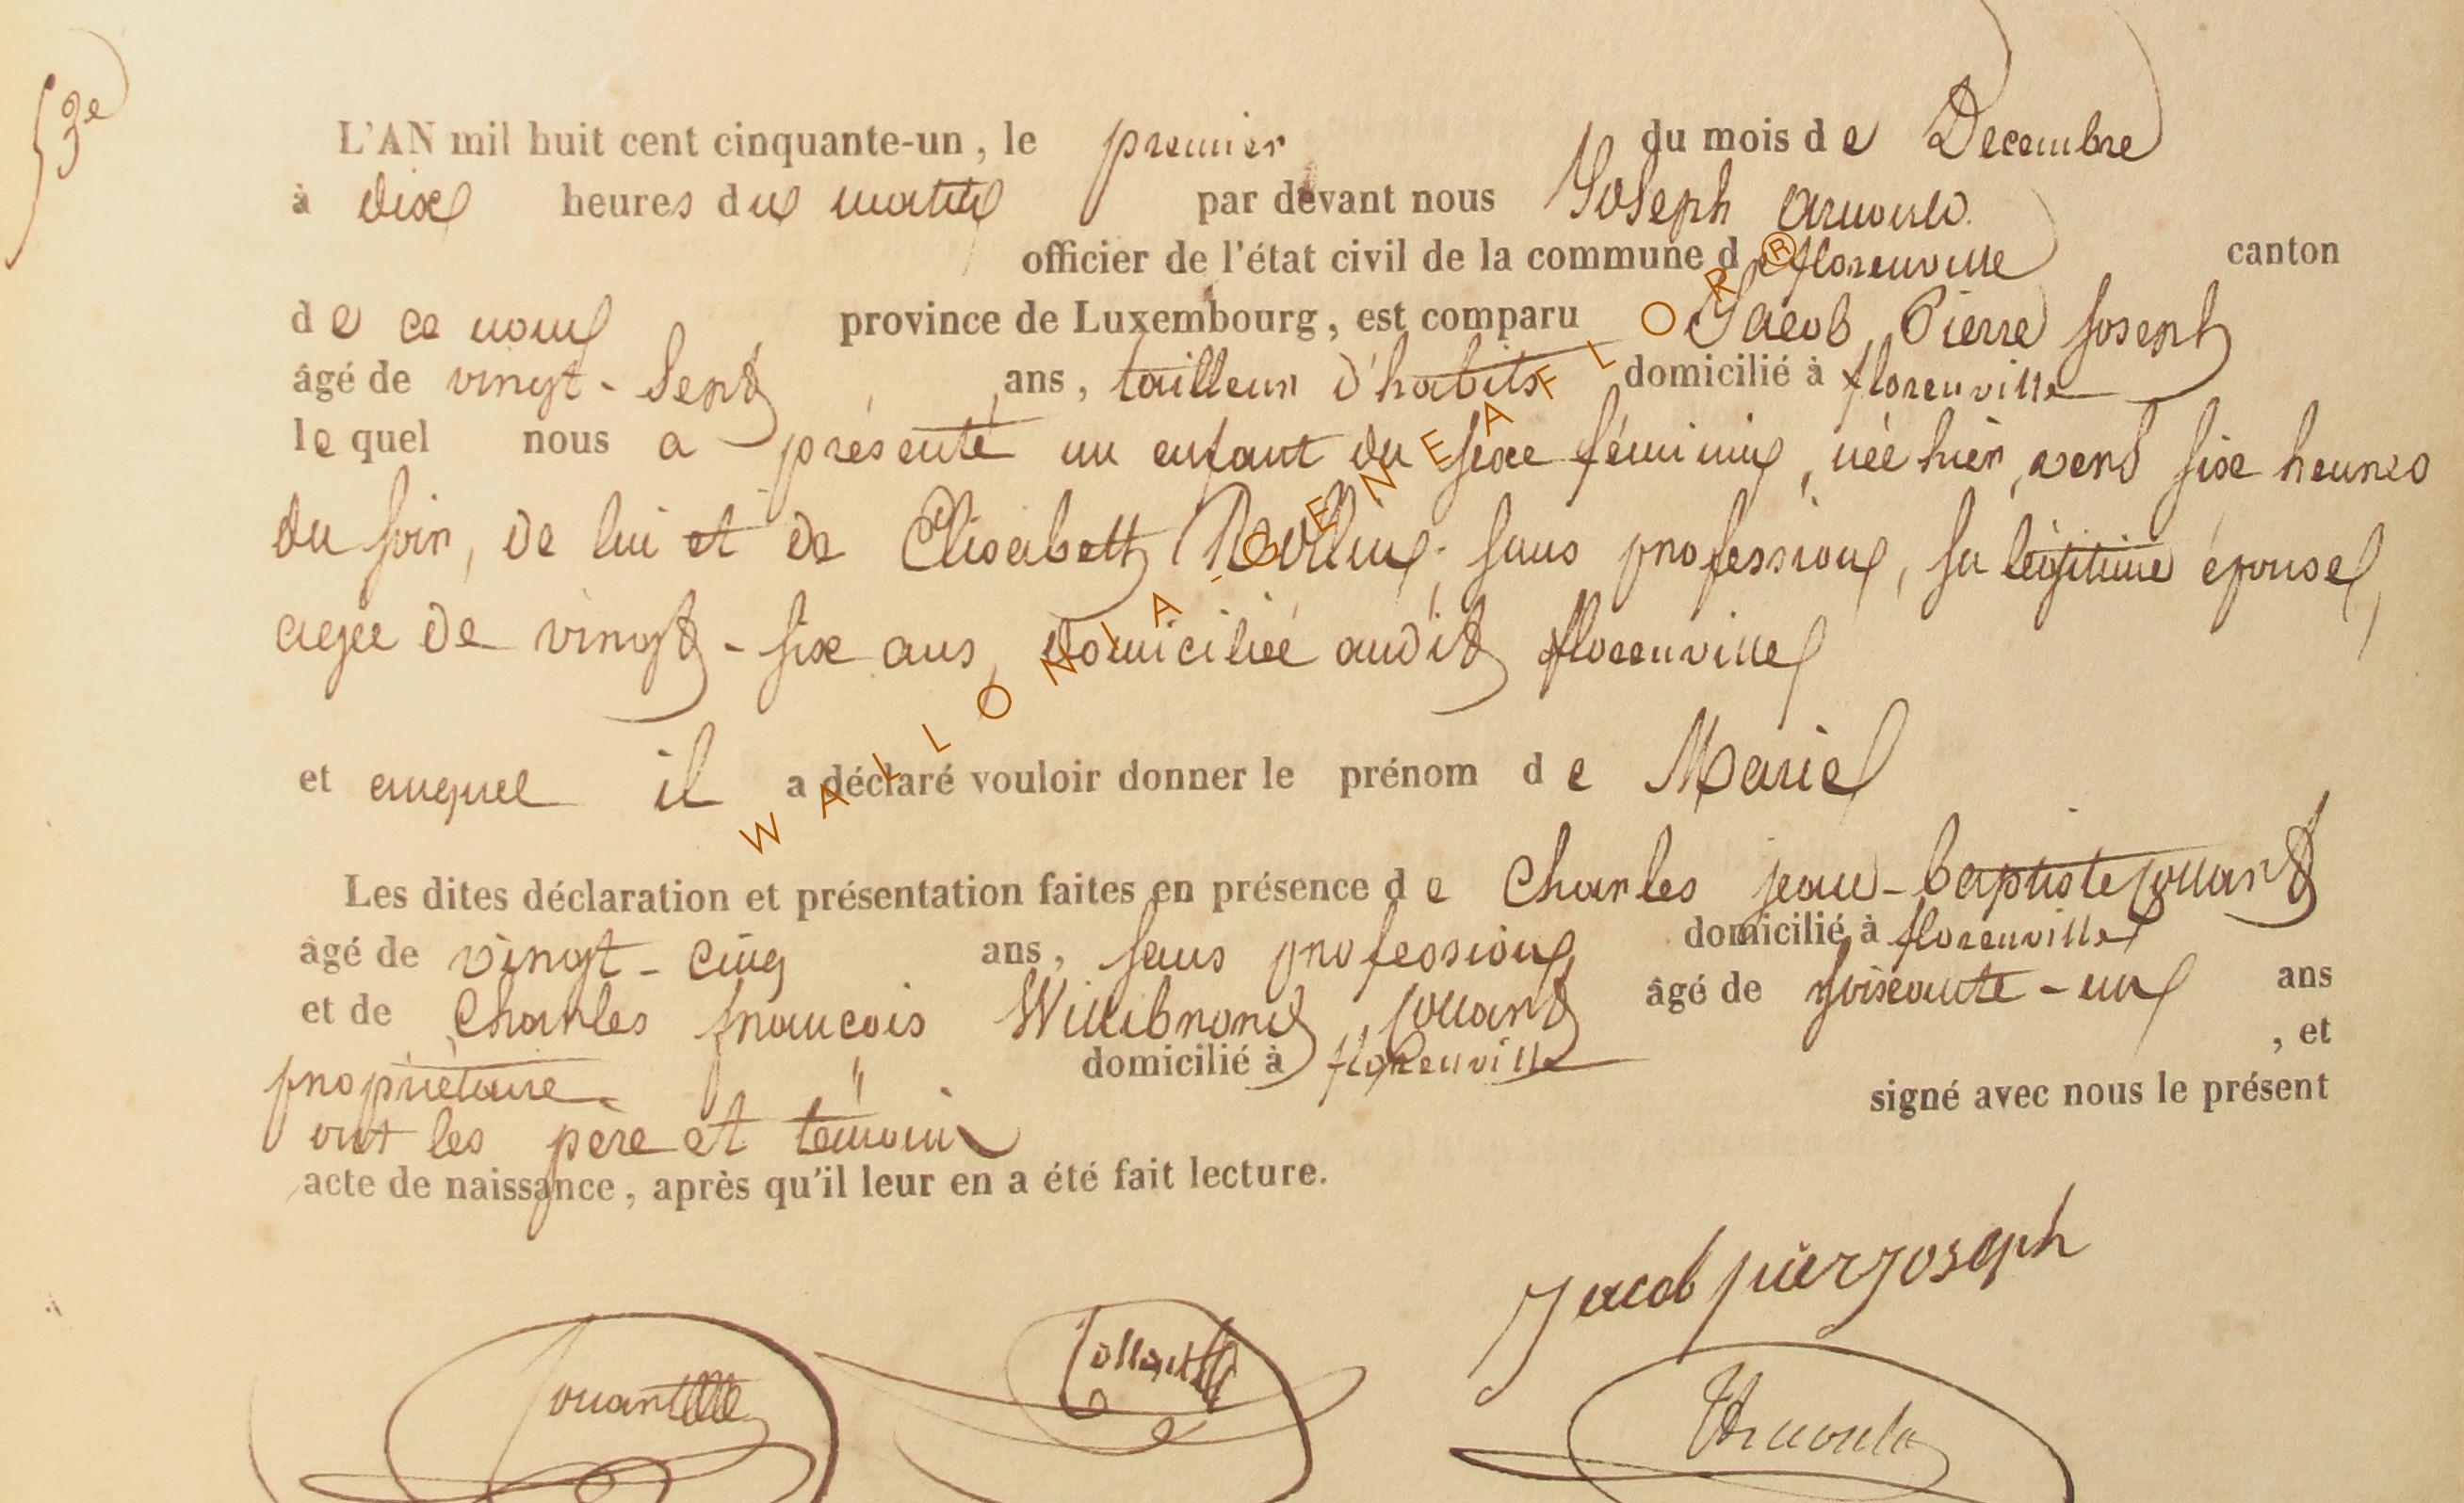 53e
L'AN mil huit cent cinquante-un, le premier du mois de Decembre
à dix heures du matin par devant nous Joseph Arnould
officier de l'état civil de la commune de florenville canton
de ce nom province de Luxembourg, est comparu Jacob, Pierre Joseph
âgé de vingt-sept ans, tailleur d'habits domicilié à florenville
lequel nous a présenté un enfant du sexe féminin, née hier, vers six heures
du soir, de lui et de Elisabeth sans profession, sa légitime épouse,
agée de vingt-six ans, domiciliée audit florenville
et auquel il a déclaré vouloir donner le prénom de Marie
Les dites déclaration et présentation faites en présence de Charles jean-baptiste jouant
âgé de vingt-cinq ans, sans profession domicilié à florenville
et de Charles françois Willibrord, jouant âgé de soixante-un ans
propriétaire " domicilié à florenville, et
ont les père et témoin signé avec nous le présent
acte de naissance, après qu'il leur en a été fait lecture.
Jacob pier joseph
Jouant Jouant Arnould
WALLONIA-GENEAFLOR®